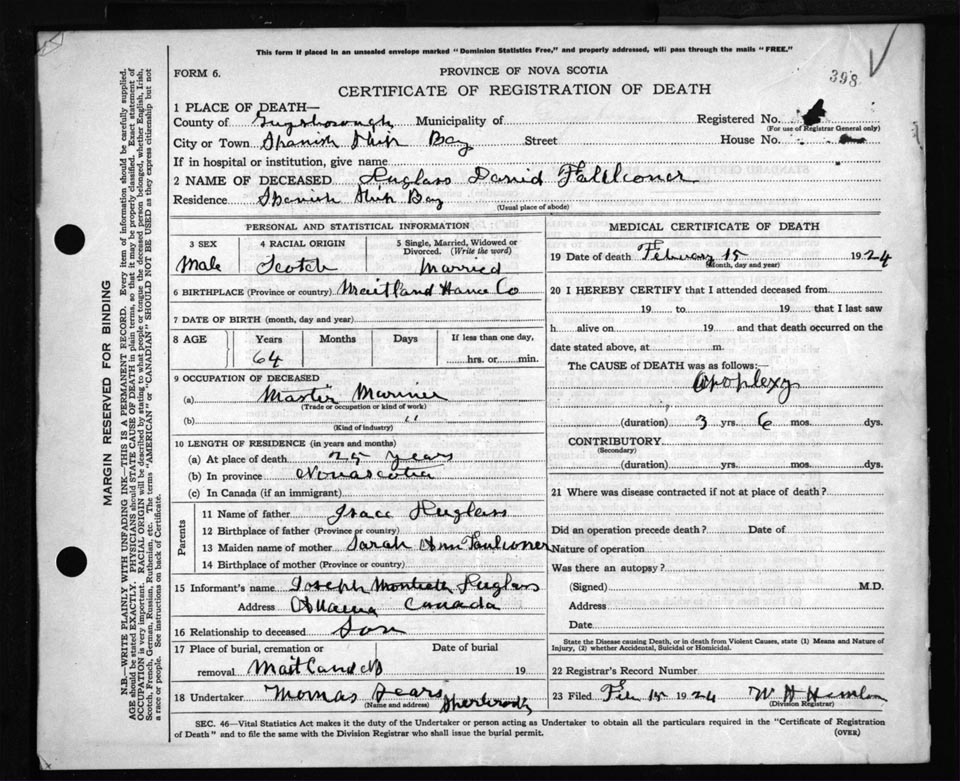 This form if placed in an unsealed envelope marked "Dominion Statistics Free," and properly addressed, will pass through the mails "FREE."
FORM 6.
PROVINCE OF NOVA SCOTIA
398
CERTIFICATE OF REGISTRATION OF DEATH
1 PLACE OF DEATH—
County of Guysborough Municipality of Registered No.
(For use of Registrar General only)
City or Town Spanish Ship Bay Street House No.
If in hospital or institution, give name
2 NAME OF DECEASED Huglass David Falilconer
Residence Spanish Ship Bay
(Usual place of abode)
PERSONAL AND STATISTICAL INFORMATION
3 SEX 4 RACIAL ORIGIN 5 Single, Married, Widowed or Divorced. (Write the word)
Male Scotch Married
6 BIRTHPLACE (Province or country) Maitland Co
7 DATE OF BIRTH (month, day and year)
8 AGE Years Months Days If less than one day,
64 hrs. or min.
9 OCCUPATION OF DECEASED
(a) Master Mariner
(Trade or occupation or kind of work)
(b) "
(Kind of industry)
10 LENGTH OF RESIDENCE (in years and months)
(a) At place of death 25 years
(b) In province Novascotia
(c) In Canada (if an immigrant)
Parents
11 Name of father Isacc Huglass
12 Birthplace of father (Province or country)
13 Maiden name of mother Sarah Ann Faulconer
14 Birthplace of mother (Province or country)
15 Informant's name Joseph Montieth Huglass
Address Canada
16 Relationship to deceased Son
17 Place of burial, cremation or removal Date of burial
Maitland 19
18 Undertaker Thomas Fears Sherbrook
(Name and address)
MEDICAL CERTIFICATE OF DEATH
19 Date of death February 15 1924
(Month, day and year)
20 I HEREBY CERTIFY that I attended deceased from
19 to 19 that I last saw
h alive on 19 and that death occurred on the
date stated above, at m.
The CAUSE of DEATH was as follows:—
Apoplexy
(duration) 3 yrs. 6 mos. dys.
CONTRIBUTORY
(Secondary)
(duration) yrs. mos. dys.
21 Where was disease contracted if not at place of death?
Did an operation precede death? Date of
Nature of operation
Was there an autopsy?
(Signed) M.D.
Address
Date
State the Disease causing Death, or in death from Violent Causes, state (1) Means and Nature of
Injury, (2) whether Accidental, Suicidal or Homicidal.
22 Registrar's Record Number
23 Filed Feb 15 1924 W H Hemlow
(Division Registrar)
SEC. 46—Vital Statistics Act makes it the duty of the Undertaker or person acting as Undertaker to obtain all the particulars required in the "Certificate of Registration
of Death" and to file the same with the Division Registrar who shall issue the burial permit.
(OVER)
MARGIN RESERVED FOR BINDING
N.B.—WRITE PLAINLY WITH UNFADING INK—THIS IS A PERMANENT RECORD. Every item of information should be carefully supplied.
AGE should be stated EXACTLY. PHYSICIANS should STATE CAUSE OF DEATH in plain terms, so that it may be properly classified. Exact statement of
OCCUPATION is very important. RACIAL ORIGIN will be described by stating to what people or tongue the deceased person belonged, whether English, Irish,
Scotch, French, German, Russian, Ruthenian, etc. The terms "AMERICAN" or "CANADIAN" SHOULD NOT BE USED as they express citizenship but not
a race or people. See instructions on back of Certificate.